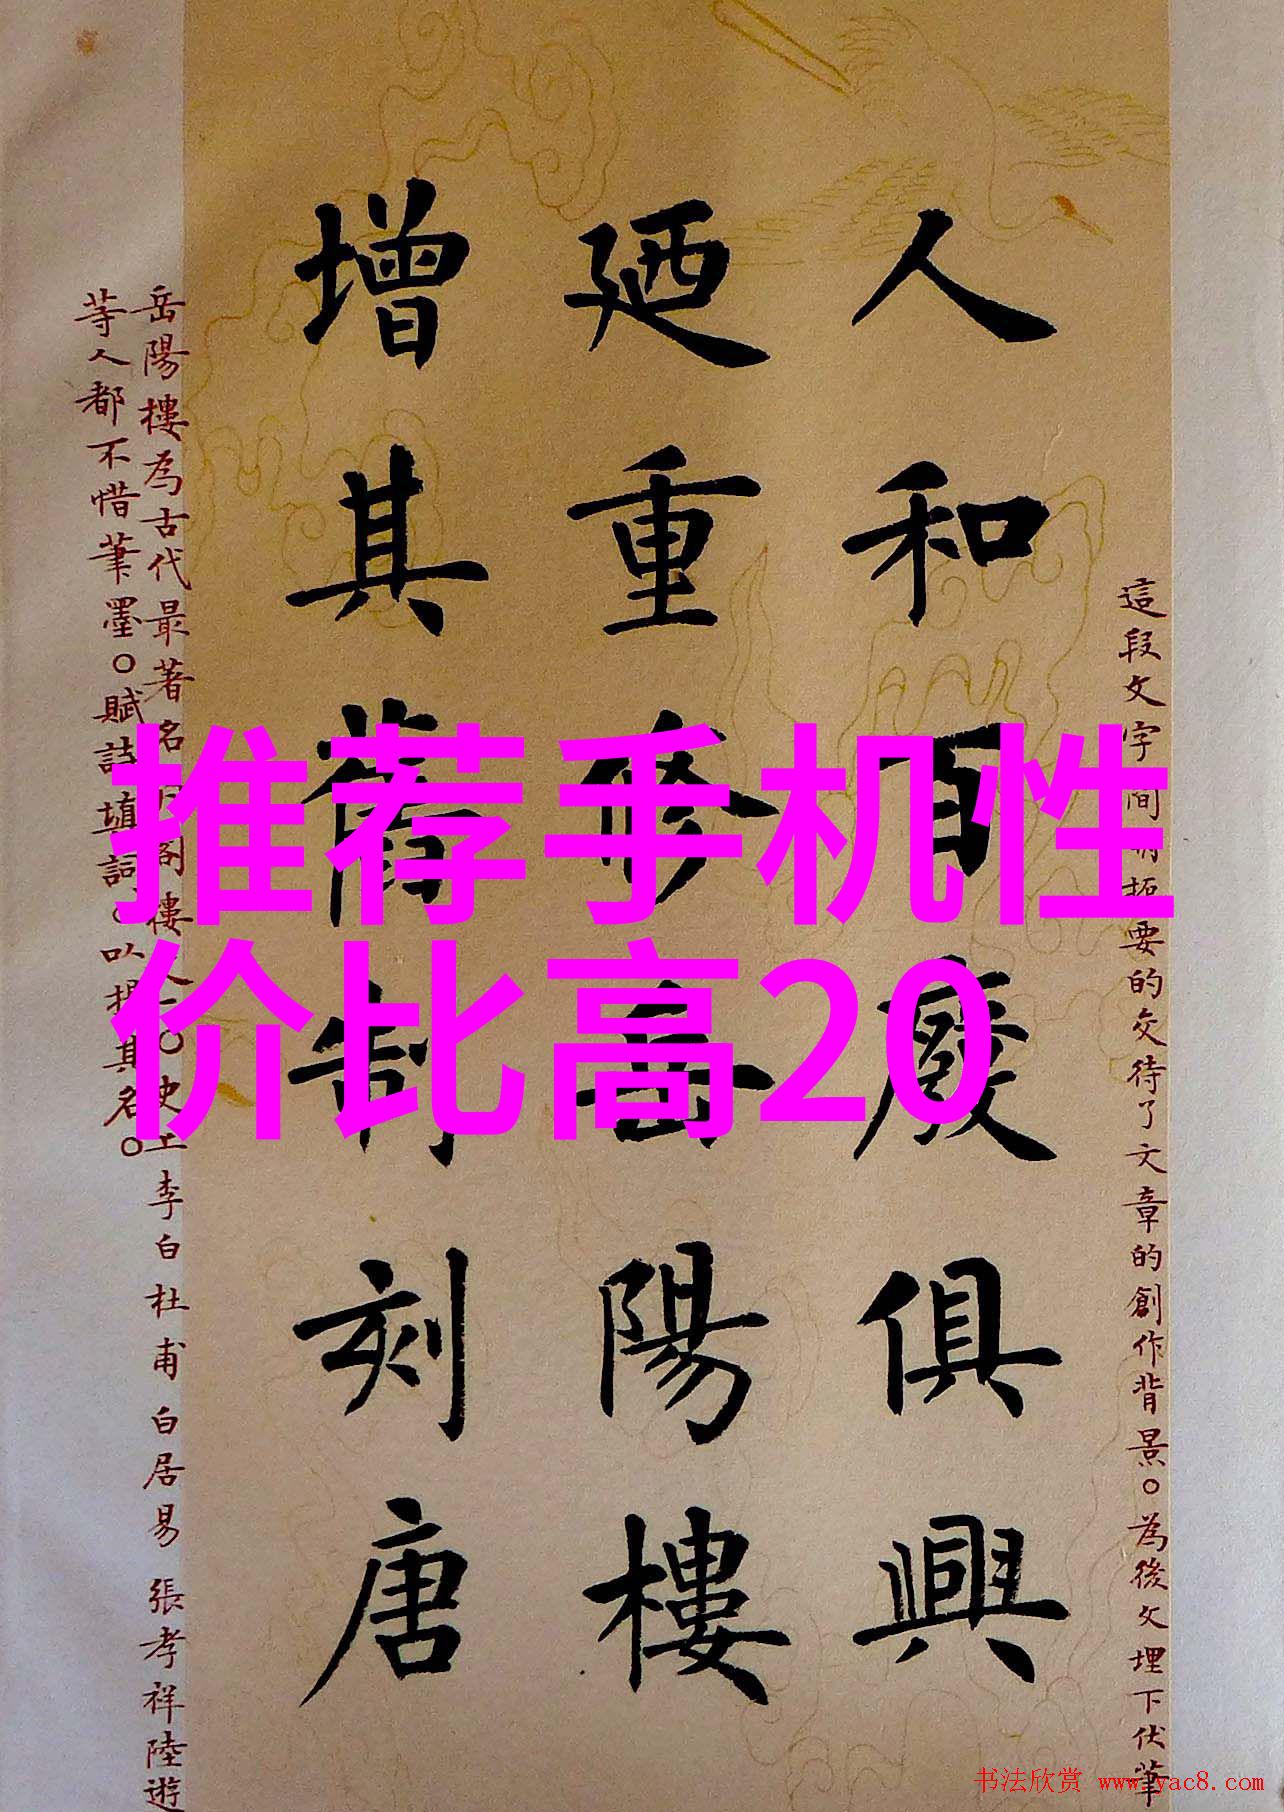 推荐手机性
价比高20
這段文字間明扼要的交待了文章的創作背景。為後文埋下伏筆
人和百廢俱興
廼重修岳陽樓
增其舊制刻唐
岳陽樓為古代最著名
樓
史上李白杜甫白居易張孝祥陸遊
等人都不惜筆墨。賦詩填詞。以揚其名。
书法欣赏 www.yac8.com